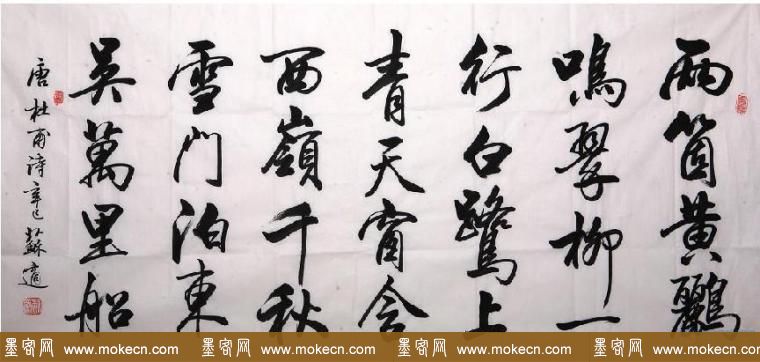 兩箇黃鸝
鳴翠柳一
行白鷺上
青天窗含
西嶺千秋
雪門泊東
吳萬里船
唐杜甫詩辛巳蘇適
墨客网 www.mokecn.com 墨客网 www.mokecn.com 墨客网 www.mokecn.com